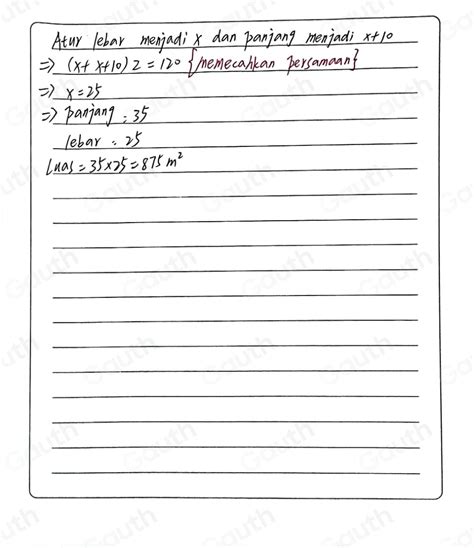 Atur lebar menjadi x dan panjang menjadi x+10
=> (x+ x+10) 2 = 120 {memecahkan persamaan}
=> x = 25
=> panjang : 35
lebar : 25
Luas = 35x25 = 875 m²